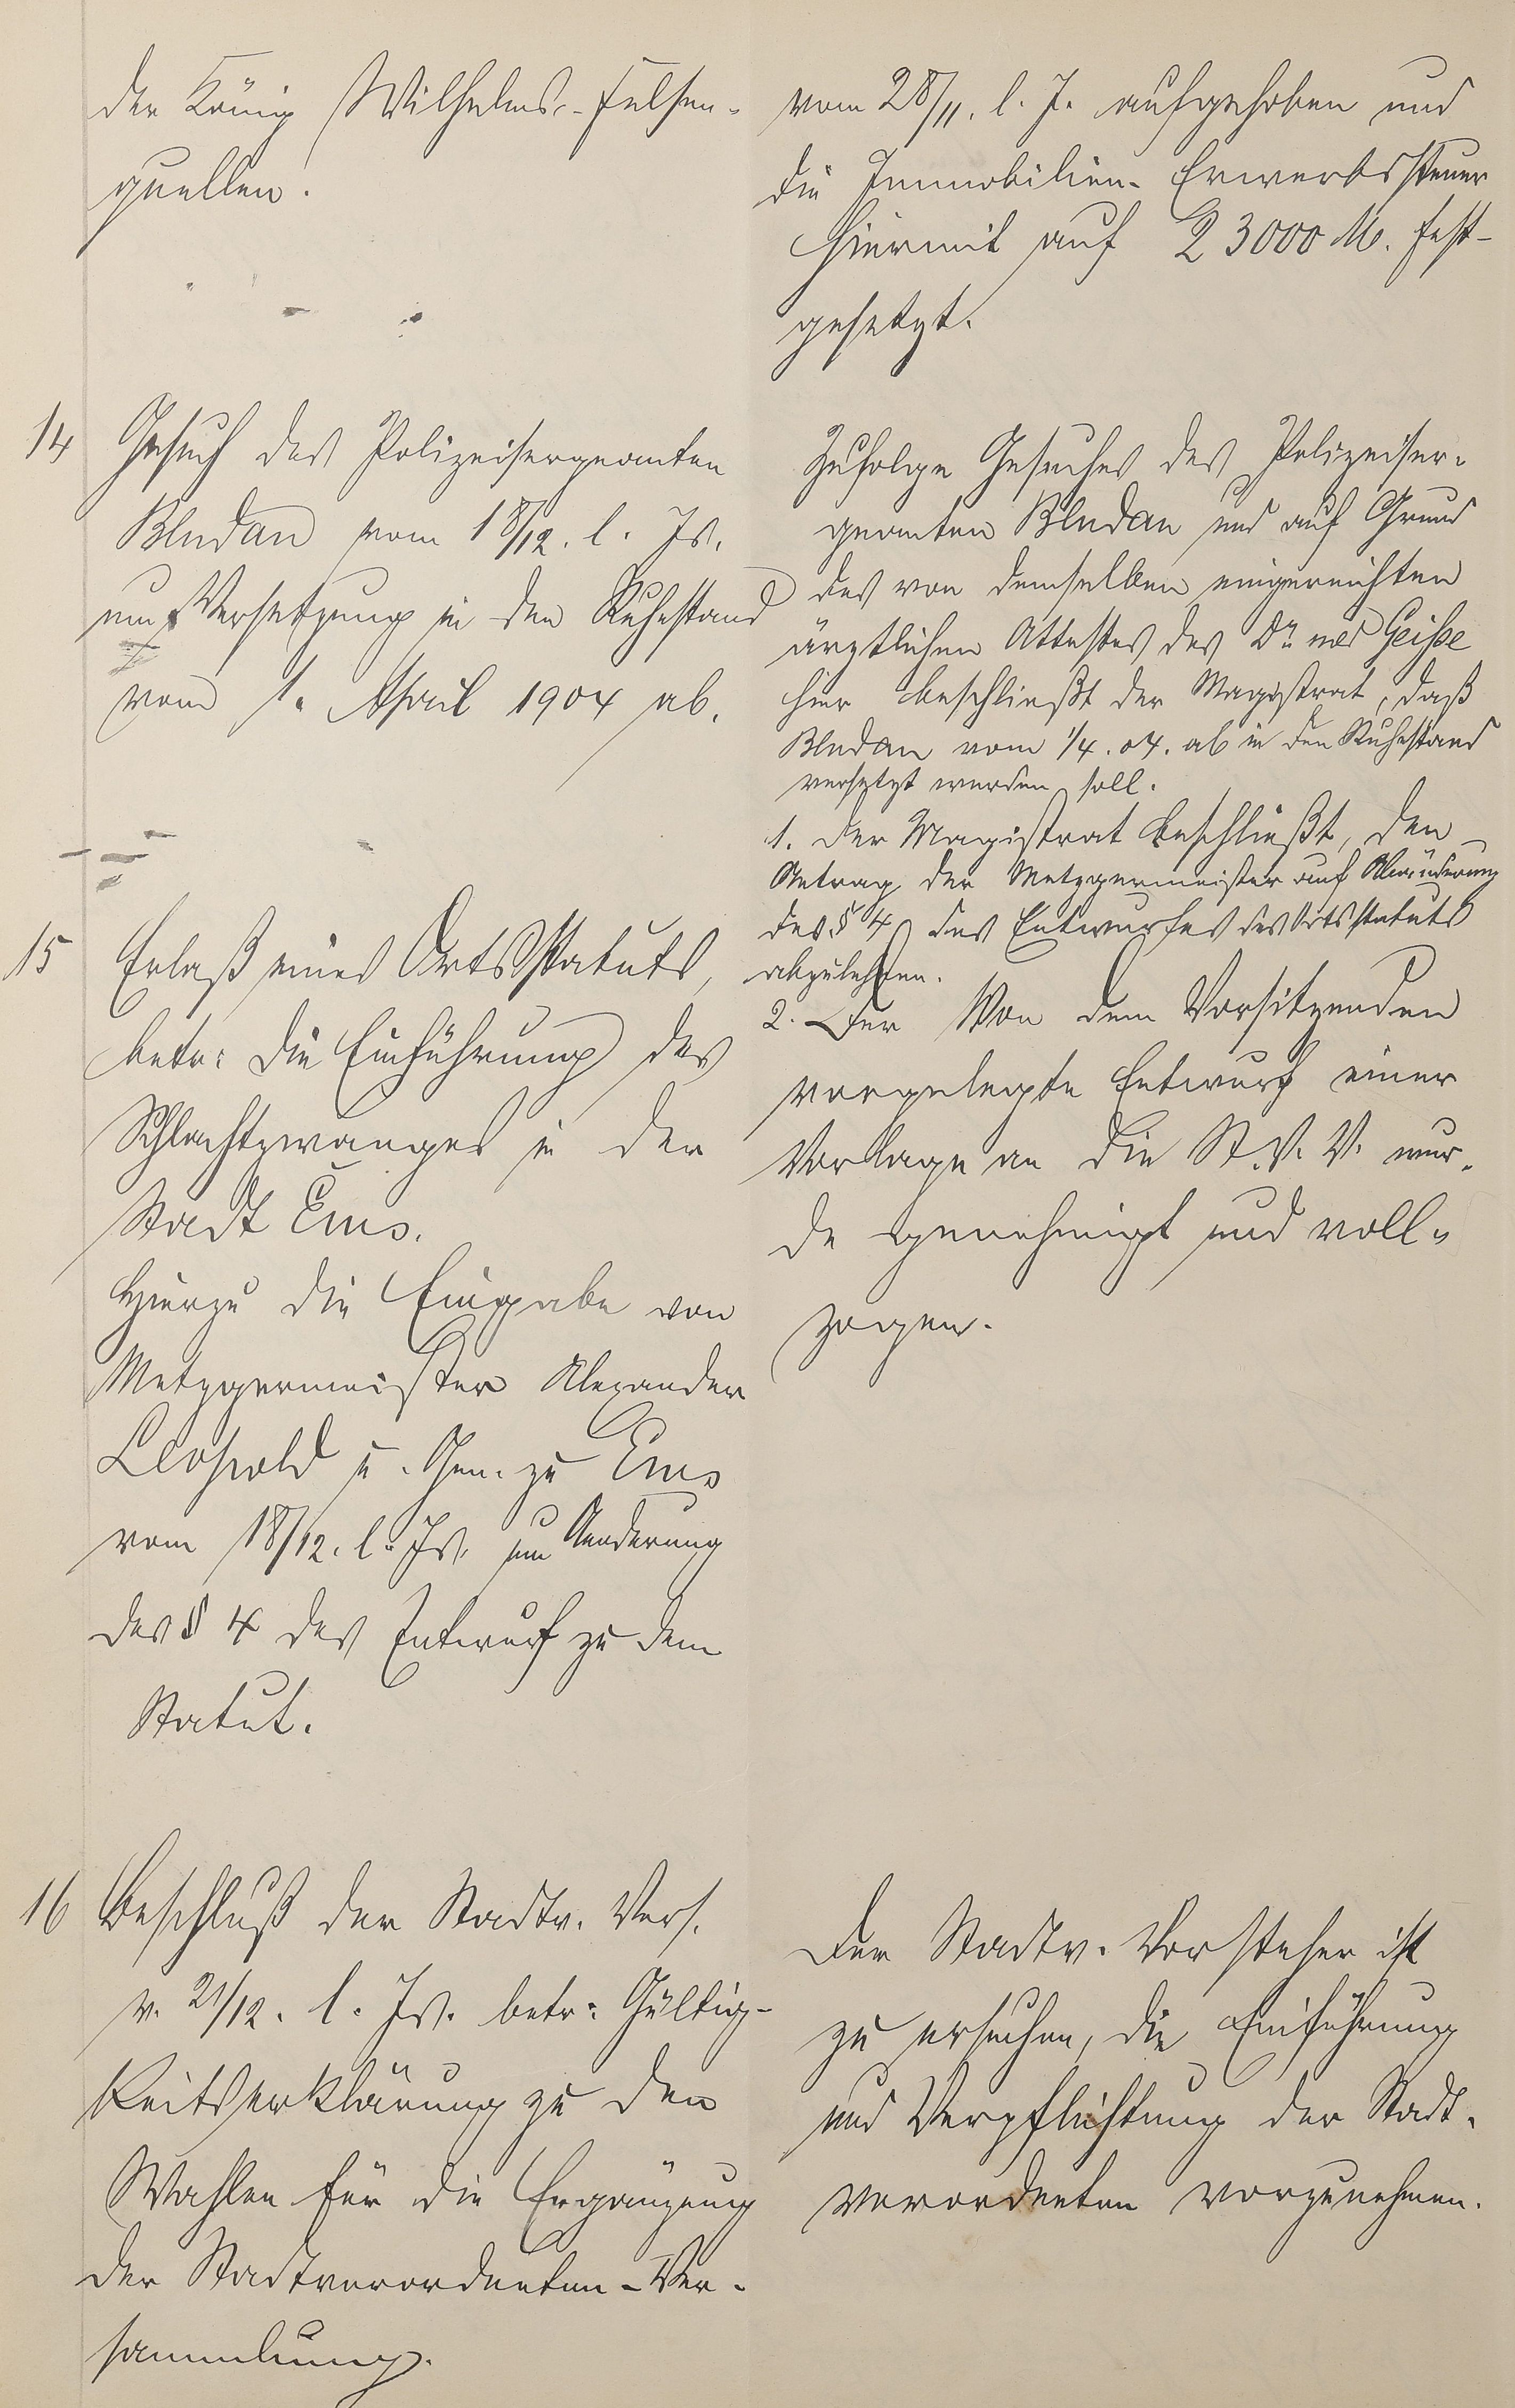 der König Wilhelms-Felsen-
quellen.
vom 28/11. l. J. aufgehoben und
die Immobilien-Erwerbssteuer
hiermit auf 23000 M. fest-
gesetzt.
14
Gesuch des Polizeisergeanten
Bludau vom 18/12. l. Js.
um Versetzung in den Ruhestand
vom 1. April 1904 ab.
Zufolge Gesuches des Polizeiser-
geanten Bludau und auf Grund
des von demselben eingereichten
ärztlichen Attestes des Dr. med Geiße
hier beschließt der Magistrat, daß
Bludau vom 1/4.04. ab in den Ruhestand
versetzt werden soll.
15
Erlaß eines Ortsstatuts,
betr: die Einführung des
Schlachtzwanges in der
Stadt Ems.
Hierzu die Eingabe von
Metzgermeister Alexander
Leopold u. Gen. zu Ems
vom 18/12. l. Js. um Aenderung
des § 4 des Entwurf zu dem
Statut.
1. Der Magistrat beschließt, den
Antrag der Metzgermeister auf Abänderung
des § 4 des Entwurfes des Ortsstatuts
abzulehnen.
2. Der Von dem Vorsitzenden
vorgelegte Entwurf einer
Vorlage an die St. V. V. wur-
de genehmigt und voll-
zogen.
16
Beschluß der Stadtv. Vers.
v. 21/12. l. Js. betr: Gültig-
keitserklärung zu den
Wahlen für die Ergänzung
der Stadtverordneten-Ver-
sammlung.
Der Stadtv. Vorsteher ist
zu ersuchen, die Einführung
und Verpflichtung der Stadt-
verordneten vorzunehmen.